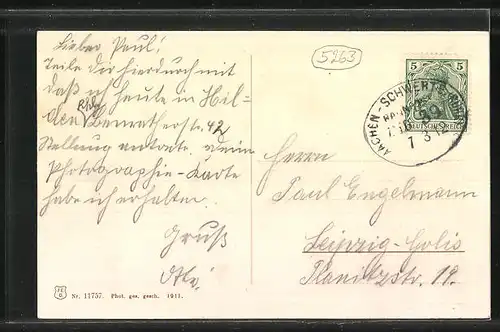 Lieber Paul!
Teile dir hierdurch mit
daß ich heute in Hil-
den Rhld. Benratherstr. 42
Stellung antrete. Deine
Photographie-Karte
habe ich erhalten.
Gruß
5263
5 5
DEUTSCHES REICH
AACHEN - SCHWERTE (RUHR)
BAHNPOST
7 3 12
Herrn
Paul Engelmann
Leipzig-Golis
Planitzstr. 19.
Nr. 11757. Phot. ges. gesch. 1911.